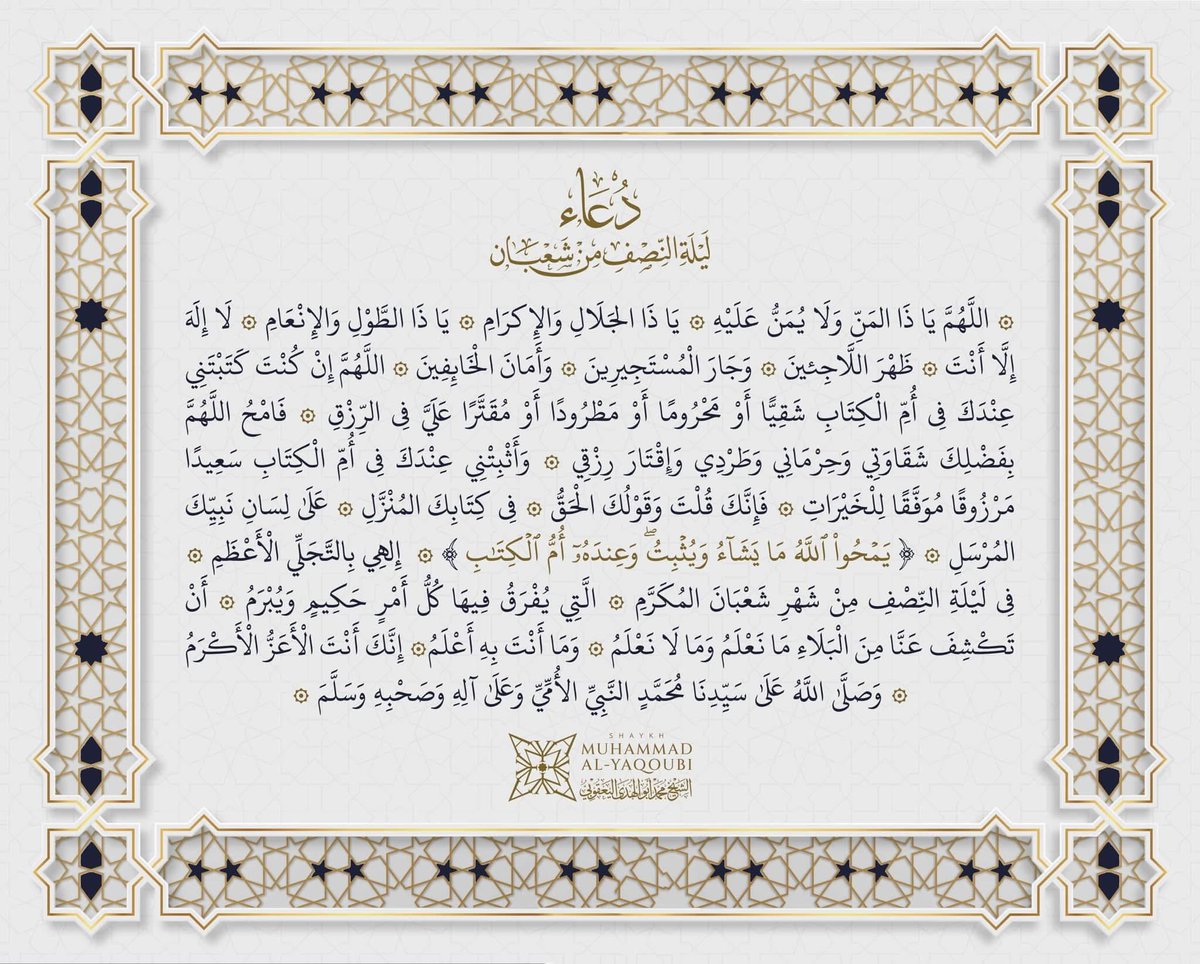 دُعَاء
لَيْلَةِ النِّصْفِ مِنْ شَعْبَان
۞ اللَّهُمَّ يَا ذَا المَنِّ وَلَا يُمَنُّ عَلَيْهِ ۞ يَا ذَا الجَلَالِ وَالإِكرَامِ ۞ يَا ذَا الطَّوْلِ وَالإِنْعَامِ ۞ لَا إِلَهَ
إِلَّا أَنْتَ ۞ ظَهْرَ اللَّاجِئِينَ ۞ وَجَارَ الْمُسْتَجِيرِينَ ۞ وَأَمَانَ الْخَائِفِينَ ۞ اللَّهُمَّ إِنْ كُنْتَ كَتَبْتَنِي
عِنْدَكَ فِي أُمِّ الْكِتَابِ شَقِيًّا أَوْ مَحْرُومًا أَوْ مَطْرُودًا أَوْ مُقَتَّرًا عَلَيَّ فِي الرِّزْقِ ۞ فَامْحُ اللَّهُمَّ
بِفَضْلِكَ شَقَاوَتِي وَحِرْمَانِي وَطَرْدِي وَإِقْتَارَ رِزْقِي ۞ وَأَثْبِتْنِي عِنْدَكَ فِي أُمِّ الْكِتَابِ سَعِيدًا
مَرْزُوقًا مُوَفَّقًا لِلْخَيْرَاتِ ۞ فَإِنَّكَ قُلْتَ وَقَوْلُكَ الْحَقُّ ۞ فِي كِتَابِكَ المُنْزَّلِ ۞ عَلَى لِسَانِ نَبِيِّكَ
المُرْسَلِ ۞ ﴿ يَمْحُوا۟ ٱللَّهُ مَا يَشَآءُ وَيُثْبِتُ ۖ وَعِندَهُۥٓ أُمُّ ٱلْكِتَٰبِ ﴾ ۞ إِلهِي بِالتَّجَلِّي الْأَعْظَمِ ۞
فِي لَيْلَةِ النِّصْفِ مِنْ شَهْرِ شَعْبَانَ المُكَرَّمِ ۞ الَّتِي يُفْرَقُ فِيهَا كُلُّ أَمْرٍ حَكِيمٍ وَيُبْرَمُ ۞ أَنْ
تَكْشِفَ عَنَّا مِنَ الْبَلَاءِ مَا نَعْلَمُ وَمَا لَا نَعْلَمُ ۞ وَمَا أَنْتَ بِهِ أَعْلَمُ ۞ إِنَّكَ أَنْتَ الْأَعَزُّ الْأَكْرَمُ
۞ وَصَلَّى اللَّهُ عَلَى سَيِّدِنَا مُحَمَّدٍ النَّبِيِّ الأُمِّيِّ وَعَلَى آلِهِ وَصَحْبِهِ وَسَلَّمَ ۞
SHAYKH
MUHAMMAD
AL-YAQOUBI
الشيخ محمد أبو الهدى اليعقوبي